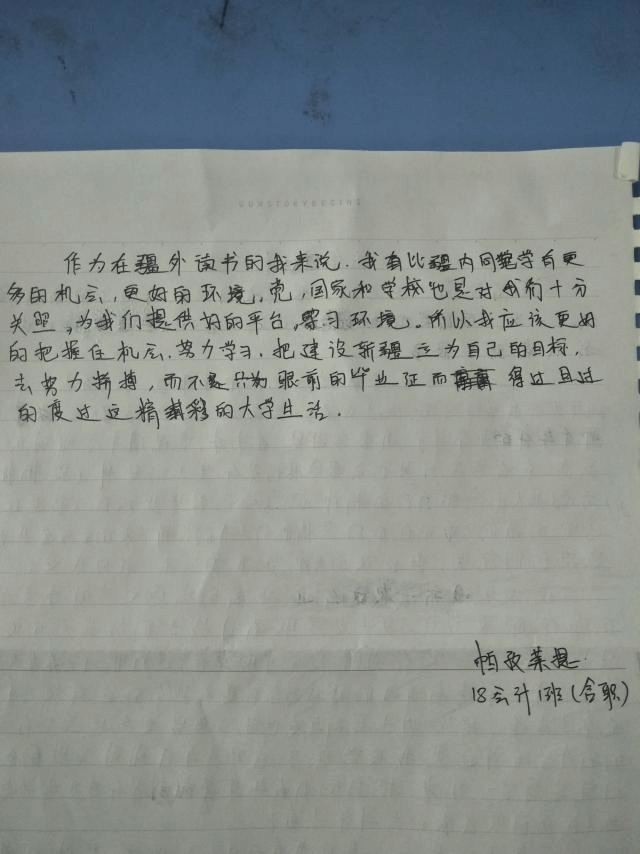 OURSTORYBEGINS
作为在疆外读书的我来说.我有比疆内同学有更
多的机会,更好的环境,党,国家和学校也是对我们十分
关照,为我们提供好的平台,学习环境。所以我应该更好
的把握住机会.努力学习.把建设新疆立为自己的目标,
去努力拼搏,而不是只为眼前的毕业证而 得过且过
的度过这精彩的大学生活.
莱提
18会计1班(含职)